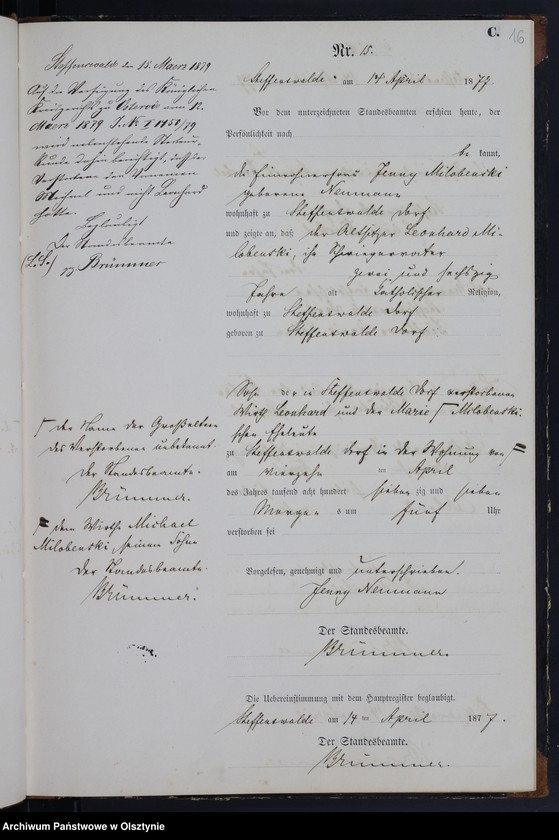 C.
16
Nr. 15.
Steffenswalde am 14 April 1877
Vor dem unterzeichneten Standesbeamten erschien heute, der
Persönlichkeit nach
be kannt,
die Einwohnerfrau Jenny Milobenski
geborene Neumann
wohnhaft zu Steffenswalde Dorf
und zeigte an, daß der Altsitzer Leonhard Mi-
lobenski, ihr Schwiegervater
zwei und sechszig
Jahre alt catholischer Religion,
wohnhaft zu Steffenswalde Dorf
geboren zu Steffenswalde Dorf
Sohn der in Steffenswalde Dorf verstorbenen
Wirth Leonhard und der Marie Γ Milobenski-
schen Eheleute
zu Steffenswalde Dorf in der Wohnung von
am vierzehn ten April
des Jahres tausend acht hundert sieben zig und sieben
Morgen s um fünf Uhr
verstorben sei
Vorgelesen, genehmigt und unterschrieben.
Jenny Neumann
Der Standesbeamte.
Brümmer.
Die Uebereinstimmung mit dem Hauptregister beglaubigt.
Steffenswalde am 14 ten April 1877.
Der Standesbeamte.
Brümmer.
Steffenswalde den 15. Maerz 1879
Auf die Verfügung des Königlichen
Kreisgerichts zu Osterode vom 12.
Maerz 1879 J. N. I 1450/79
wird nebenstehende Sterbeur-
kunde dahin berichtigt, daß der
Verstorbene den Vornamen
Michael und nicht Leonhard
hatte.
Beglaubigt
Der Standesbeamte
(L.S.) gz. Brümmer
Γ der Name der Großeltern
des Verstorbenen unbekannt.
Der Standesbeamte.
Brümmer.
dem Wirth Michael
Milobenski, seinen Sohn
Der Standesbeamte.
Brümmer.
Archiwum Państwowe w Olsztynie